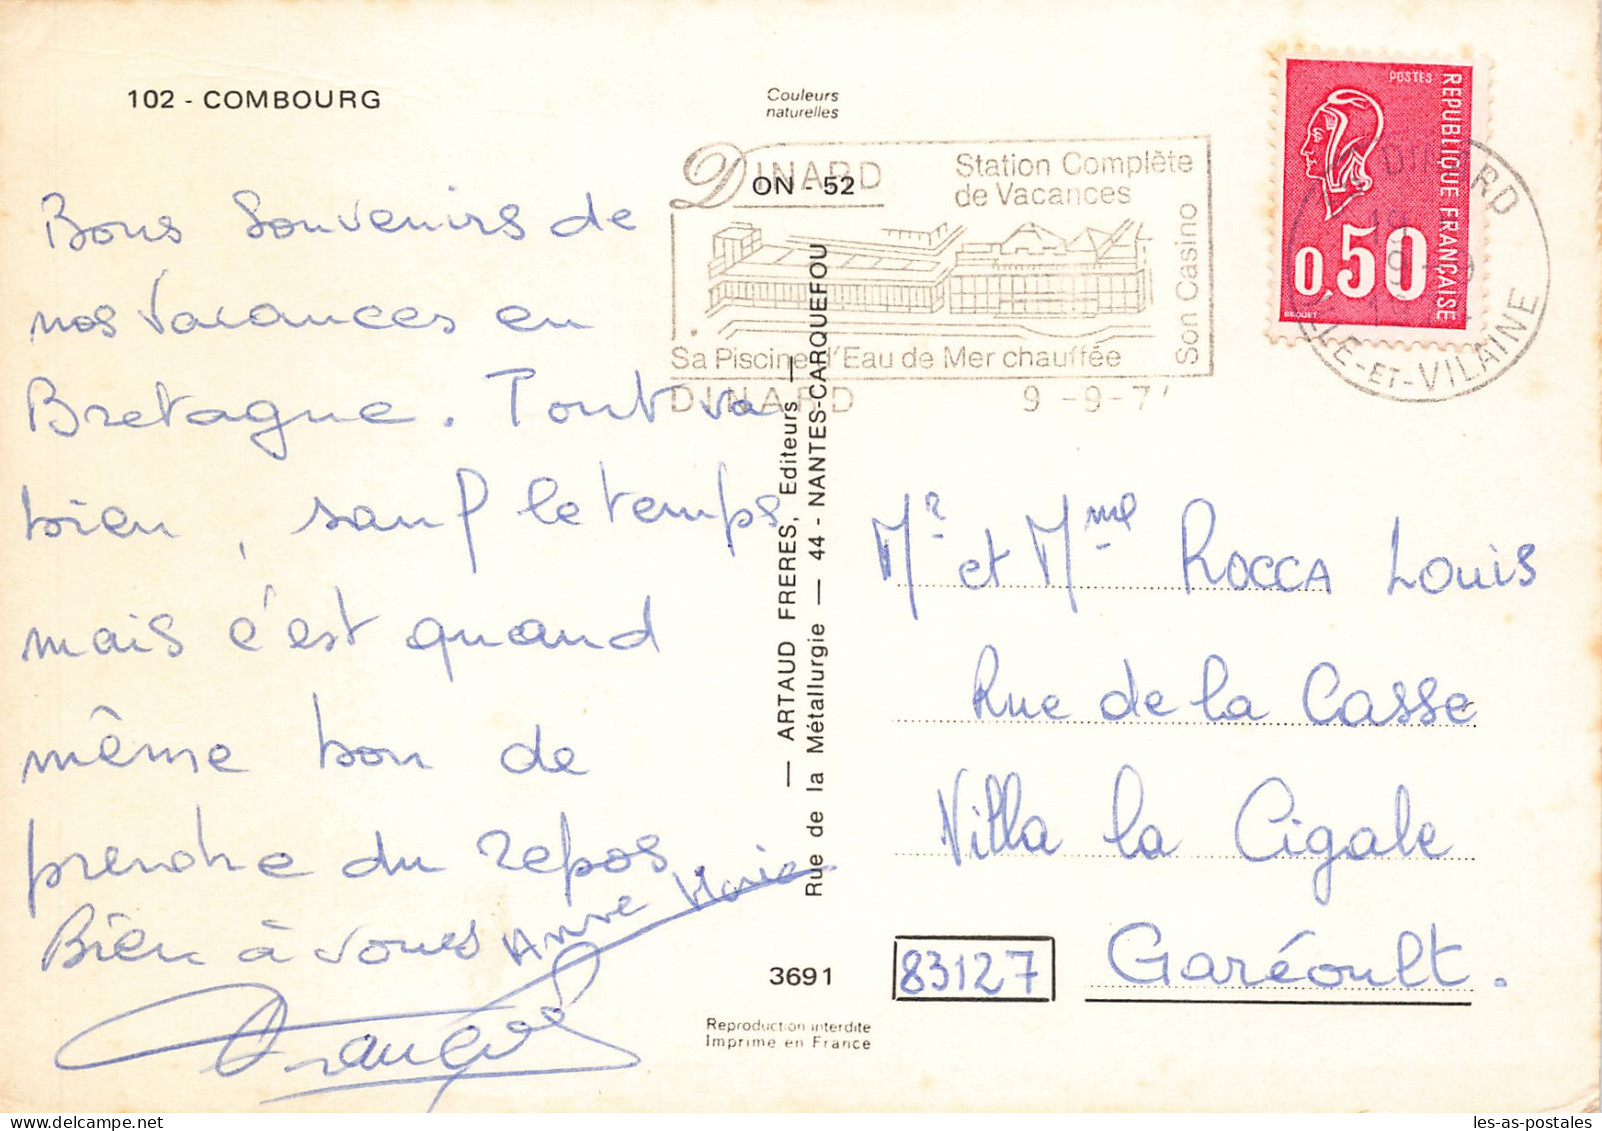 102 - COMBOURG
Couleurs
naturelles
ON - 52
DINARD
Station Complète
de Vacances
Son Casino
Sa Piscine d'Eau de Mer chauffée
DINARD 9 -9-7
POSTES
REPUBLIQUE FRANÇAISE
0,50
BEQUET
DINARD
ILLE-ET-VILAINE
Bons Souvenirs de
nos Vacances en
Bretagne. Tout va
bien, sauf le temps
mais c'est quand
même bon de
prendre du repos
Bien à vous Anne Marie
François
— ARTAUD FRERES, Editeurs —
Rue de la Métallurgie — 44 - NANTES-CARQUEFOU
Mr et Mme ROCCA Louis
Rue de la Casse
Villa la Cigale
83127 Garéoult.
3691
Reproduction interdite
Imprime en France
les-as-postales